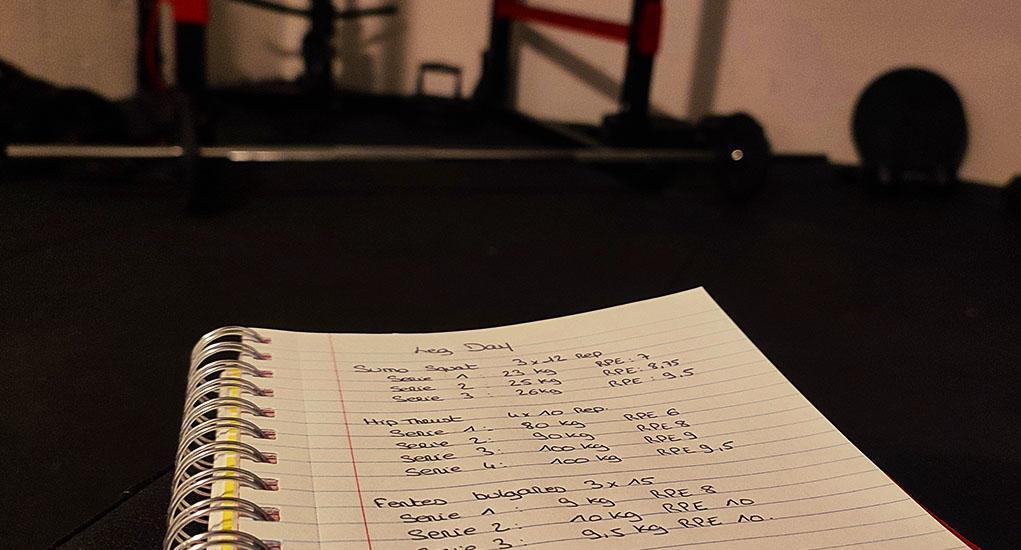 Leg Day
Sumo Squat 3x12 Rep
Serie 1 23 kg RPE: 7
Serie 2 : 25 kg RPE: 8,75
Serie 3 : 26kg RPE : 9,5
Hip Thrust 4x10 Rep.
Serie 1 : 80 kg RPE 6
Serie 2: 90kg RPE 8
Serie 3: 100 kg RPE 9
Serie 4: 100 kg RPE 9,5
Fentes bulgares 3x15
Serie 1 : 9 kg RPE 8
Serie 2 : 10 kg RPE 10
Serie 3 : 9,5 kg RPE 10.